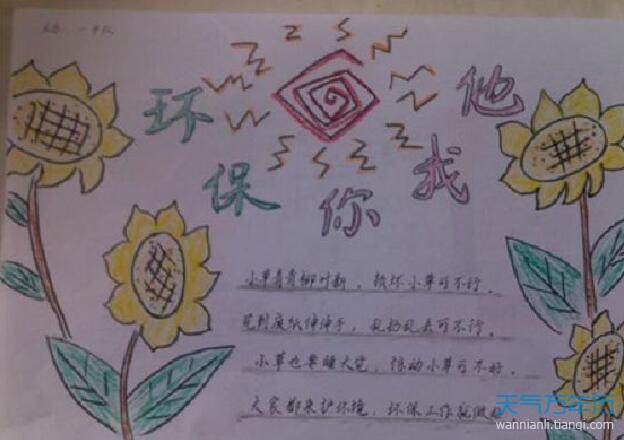 环保你我他
小草青青柳叶新，破坏小草可不行。
见到废纸伸伸手，乱扔乱丢可不行。
小草也要睡大觉，惊动小草可不好。
大家都来护环境，环保工作
天气万年历
wannianli.tianqi.com